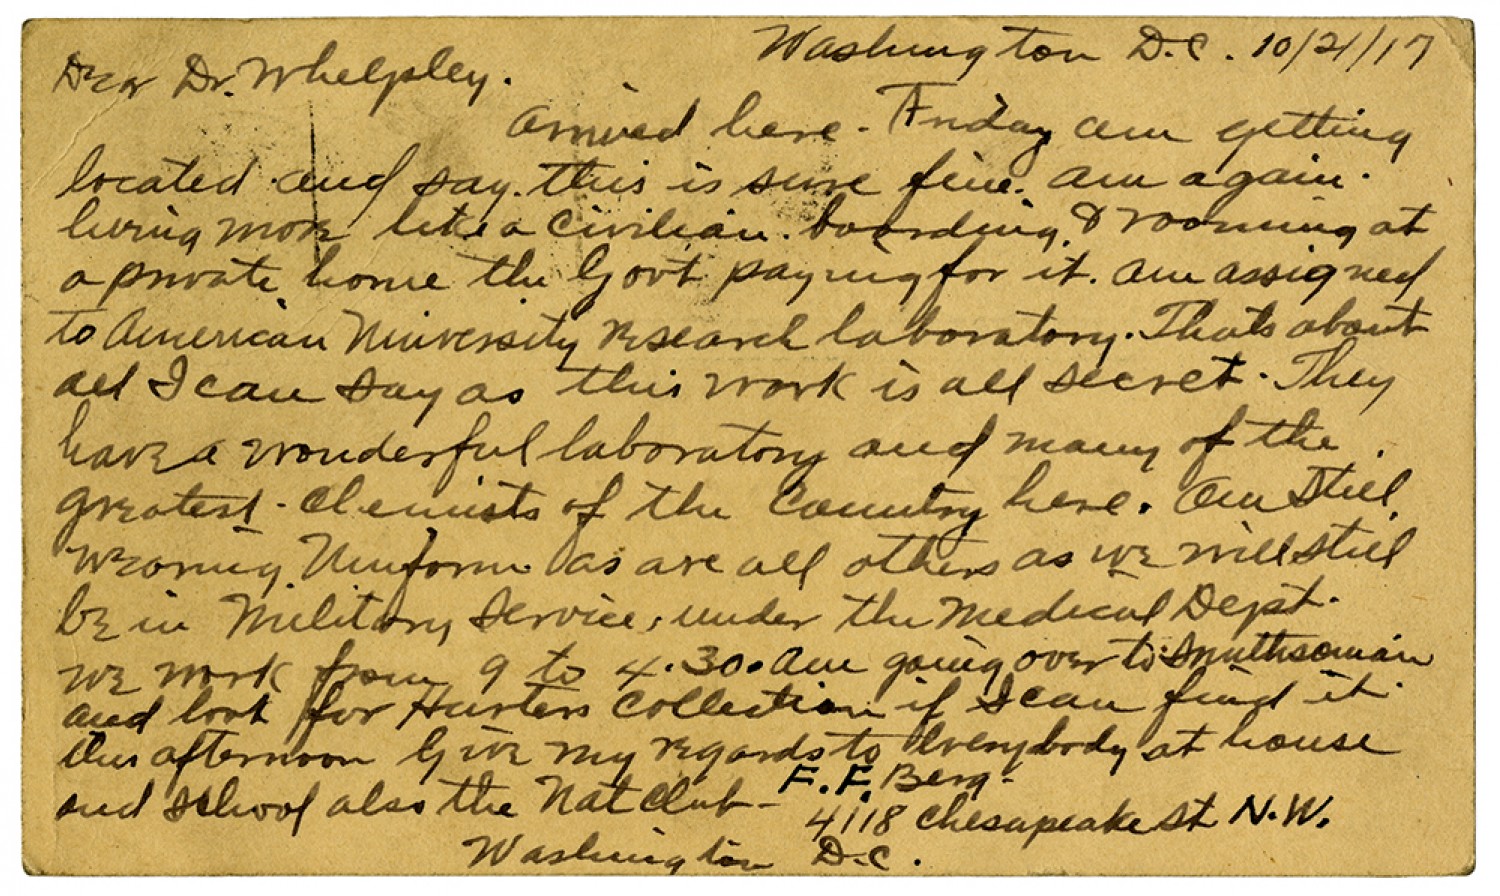 Washington D.C. 10/21/17
Dear Dr. Whelpsley.
Arrived here. Friday am getting
located and say. this is sure fine. Am again.
living more like a Civilian. boarding, & rooming at
a private home the Govt paying for it. Am assigned
to American University research laboratory. Thats about
all I can say as this work is all secret. They
have a wonderful laboratory and many of the
greatest chemists of the Country here. Am Still
wearing Uniform as are all others as we will still
be in Military Service, under the Medical Dept.
we work from 9 to 4.30. Am going over to Smithsonian
and look for Hurters Collection if I can find it
this afternoon Give my regards to Everybody at house
and school also the Nat Club - F. F. Berg -
4118 Chesapeake St N.W.
Washington D.C.